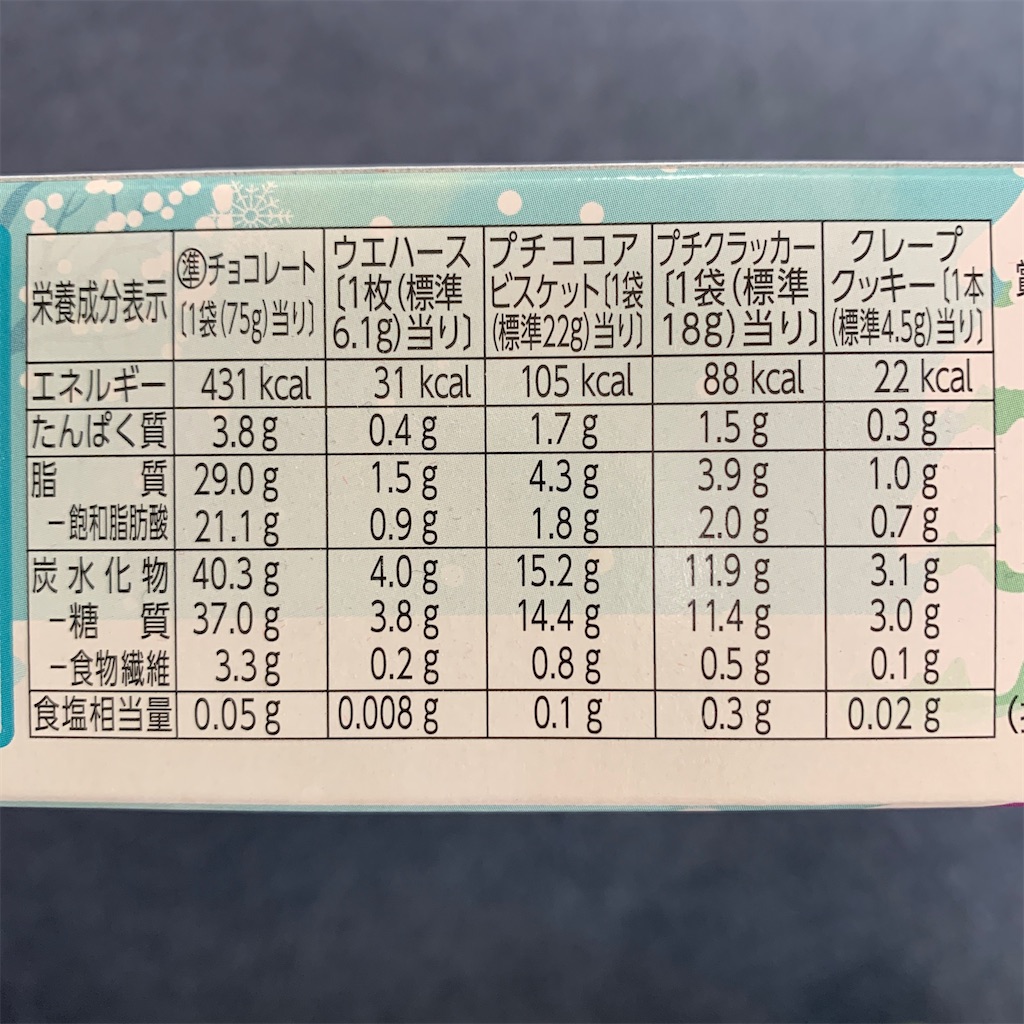 栄養成分表示 ㊟チョコレート〔1袋(75g)当り〕 ウエハース〔1枚(標準6.1g)当り〕 プチココアビスケット〔1袋(標準22g)当り〕 プチクラッカー〔1袋(標準18g)当り〕 クレープクッキー〔1本(標準4.5g)当り〕
エネルギー 431 kcal 31 kcal 105 kcal 88 kcal 22 kcal
たんぱく質 3.8g 0.4g 1.7g 1.5g 0.3g
脂質 29.0g 1.5g 4.3g 3.9g 1.0g
−飽和脂肪酸 21.1g 0.9g 1.8g 2.0g 0.7g
炭水化物 40.3g 4.0g 15.2g 11.9g 3.1g
−糖質 37.0g 3.8g 14.4g 11.4g 3.0g
−食物繊維 3.3g 0.2g 0.8g 0.5g 0.1g
食塩相当量 0.05g 0.008g 0.1g 0.3g 0.02g